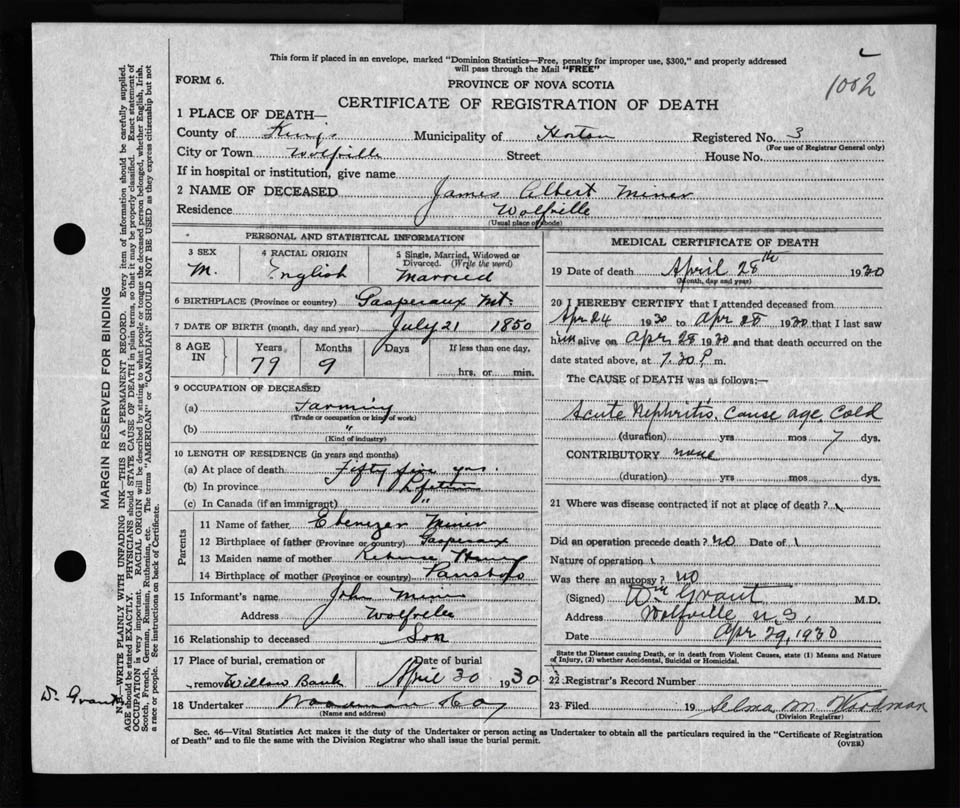 This form if placed in an envelope, marked "Dominion Statistics—Free, penalty for improper use, $300," and properly addressed
will pass through the Mail "FREE"
1002
FORM 6.
PROVINCE OF NOVA SCOTIA
CERTIFICATE OF REGISTRATION OF DEATH
1 PLACE OF DEATH—
County of Kings Municipality of Horton Registered No. 3
(For use of Registrar General only)
City or Town Wolfville Street House No.
If in hospital or institution, give name
2 NAME OF DECEASED James Albert Miner
Residence Wolfville
(Usual place of abode)
PERSONAL AND STATISTICAL INFORMATION
3 SEX M.
4 RACIAL ORIGIN English
5 Single, Married, Widowed or Divorced. (Write the word) Married
6 BIRTHPLACE (Province or country) Gasperaux Mt.
7 DATE OF BIRTH (month, day and year) July 21 1850
8 AGE IN Years 79 Months 9 Days If less than one day. hrs. or min.
9 OCCUPATION OF DECEASED
(a) Farming
(Trade or occupation or kind of work)
(b) "
(Kind of industry)
10 LENGTH OF RESIDENCE (in years and months)
(a) At place of death Fifty five yrs.
(b) In province Lifetime
(c) In Canada (if an immigrant) "
Parents
11 Name of father Ebenezer Miner
12 Birthplace of father (Province or country) Gasperaux
13 Maiden name of mother Rebecca
14 Birthplace of mother (Province or country)
15 Informant's name John Miner
Address Wolfville
16 Relationship to deceased Son
17 Place of burial, cremation or removal Willow Bank
Date of burial April 30 1930
18 Undertaker Woodman Co
(Name and address)
MEDICAL CERTIFICATE OF DEATH
19 Date of death April 28th 1930
(Month, day and year)
20 I HEREBY CERTIFY that I attended deceased from
Apr 24 1930 to Apr 28 1930 that I last saw
him alive on Apr 28 1930 and that death occurred on the
date stated above, at 7.30 P. m.
The CAUSE of DEATH was as follows:—
Acute Nephritis, cause age, cold
(duration) yrs mos 7 dys.
CONTRIBUTORY none
(duration) yrs. mos. dys.
21 Where was disease contracted if not at place of death?
Did an operation precede death? no Date of
Nature of operation
Was there an autopsy? no
(Signed) Wm Grant M.D.
Address Wolfville N.S.
Date Apr 29, 1930
State the Disease causing Death, or in death from Violent Causes, state (1) Means and Nature
of Injury, (2) whether Accidental, Suicidal or Homicidal.
22 Registrar's Record Number
23 Filed 19 Selma M. Woodman
(Division Registrar)
Sec. 46—Vital Statistics Act makes it the duty of the Undertaker or person acting as Undertaker to obtain all the particulars required in the "Certificate of Registration
of Death" and to file the same with the Division Registrar who shall issue the burial permit.
(OVER)
MARGIN RESERVED FOR BINDING
N.B.—WRITE PLAINLY WITH UNFADING INK—THIS IS A PERMANENT RECORD. Every item of information should be carefully supplied.
AGE should be stated EXACTLY. PHYSICIANS should STATE CAUSE OF DEATH in plain terms, so that it may be properly classified. Exact statement of
OCCUPATION is very important. RACIAL ORIGIN will be described by stating to what people or race the deceased person belonged, whether English, Irish,
Scotch, French, German, Russian, Ruthenian, etc. The terms "AMERICAN" or "CANADIAN" SHOULD NOT BE USED as they express citizenship but not
a race or people. See instructions on back of Certificate.
Dr Grant